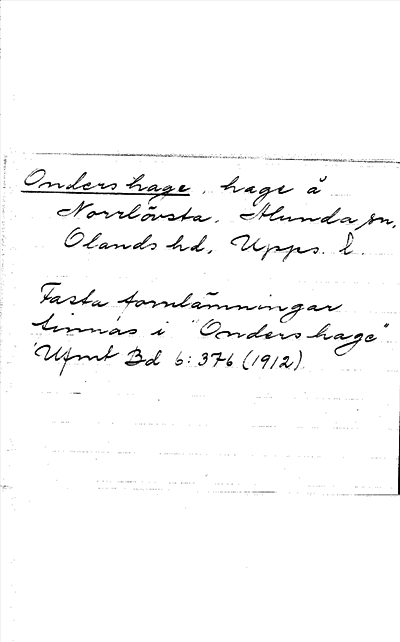 Onders hage, hage å
Norrlövsta, Alunda sn,
Olands hd, Upps. l.
Fasta fornlämningar
finnas i "Onders hage"
Ufmt Bd 6: 376 (1912)